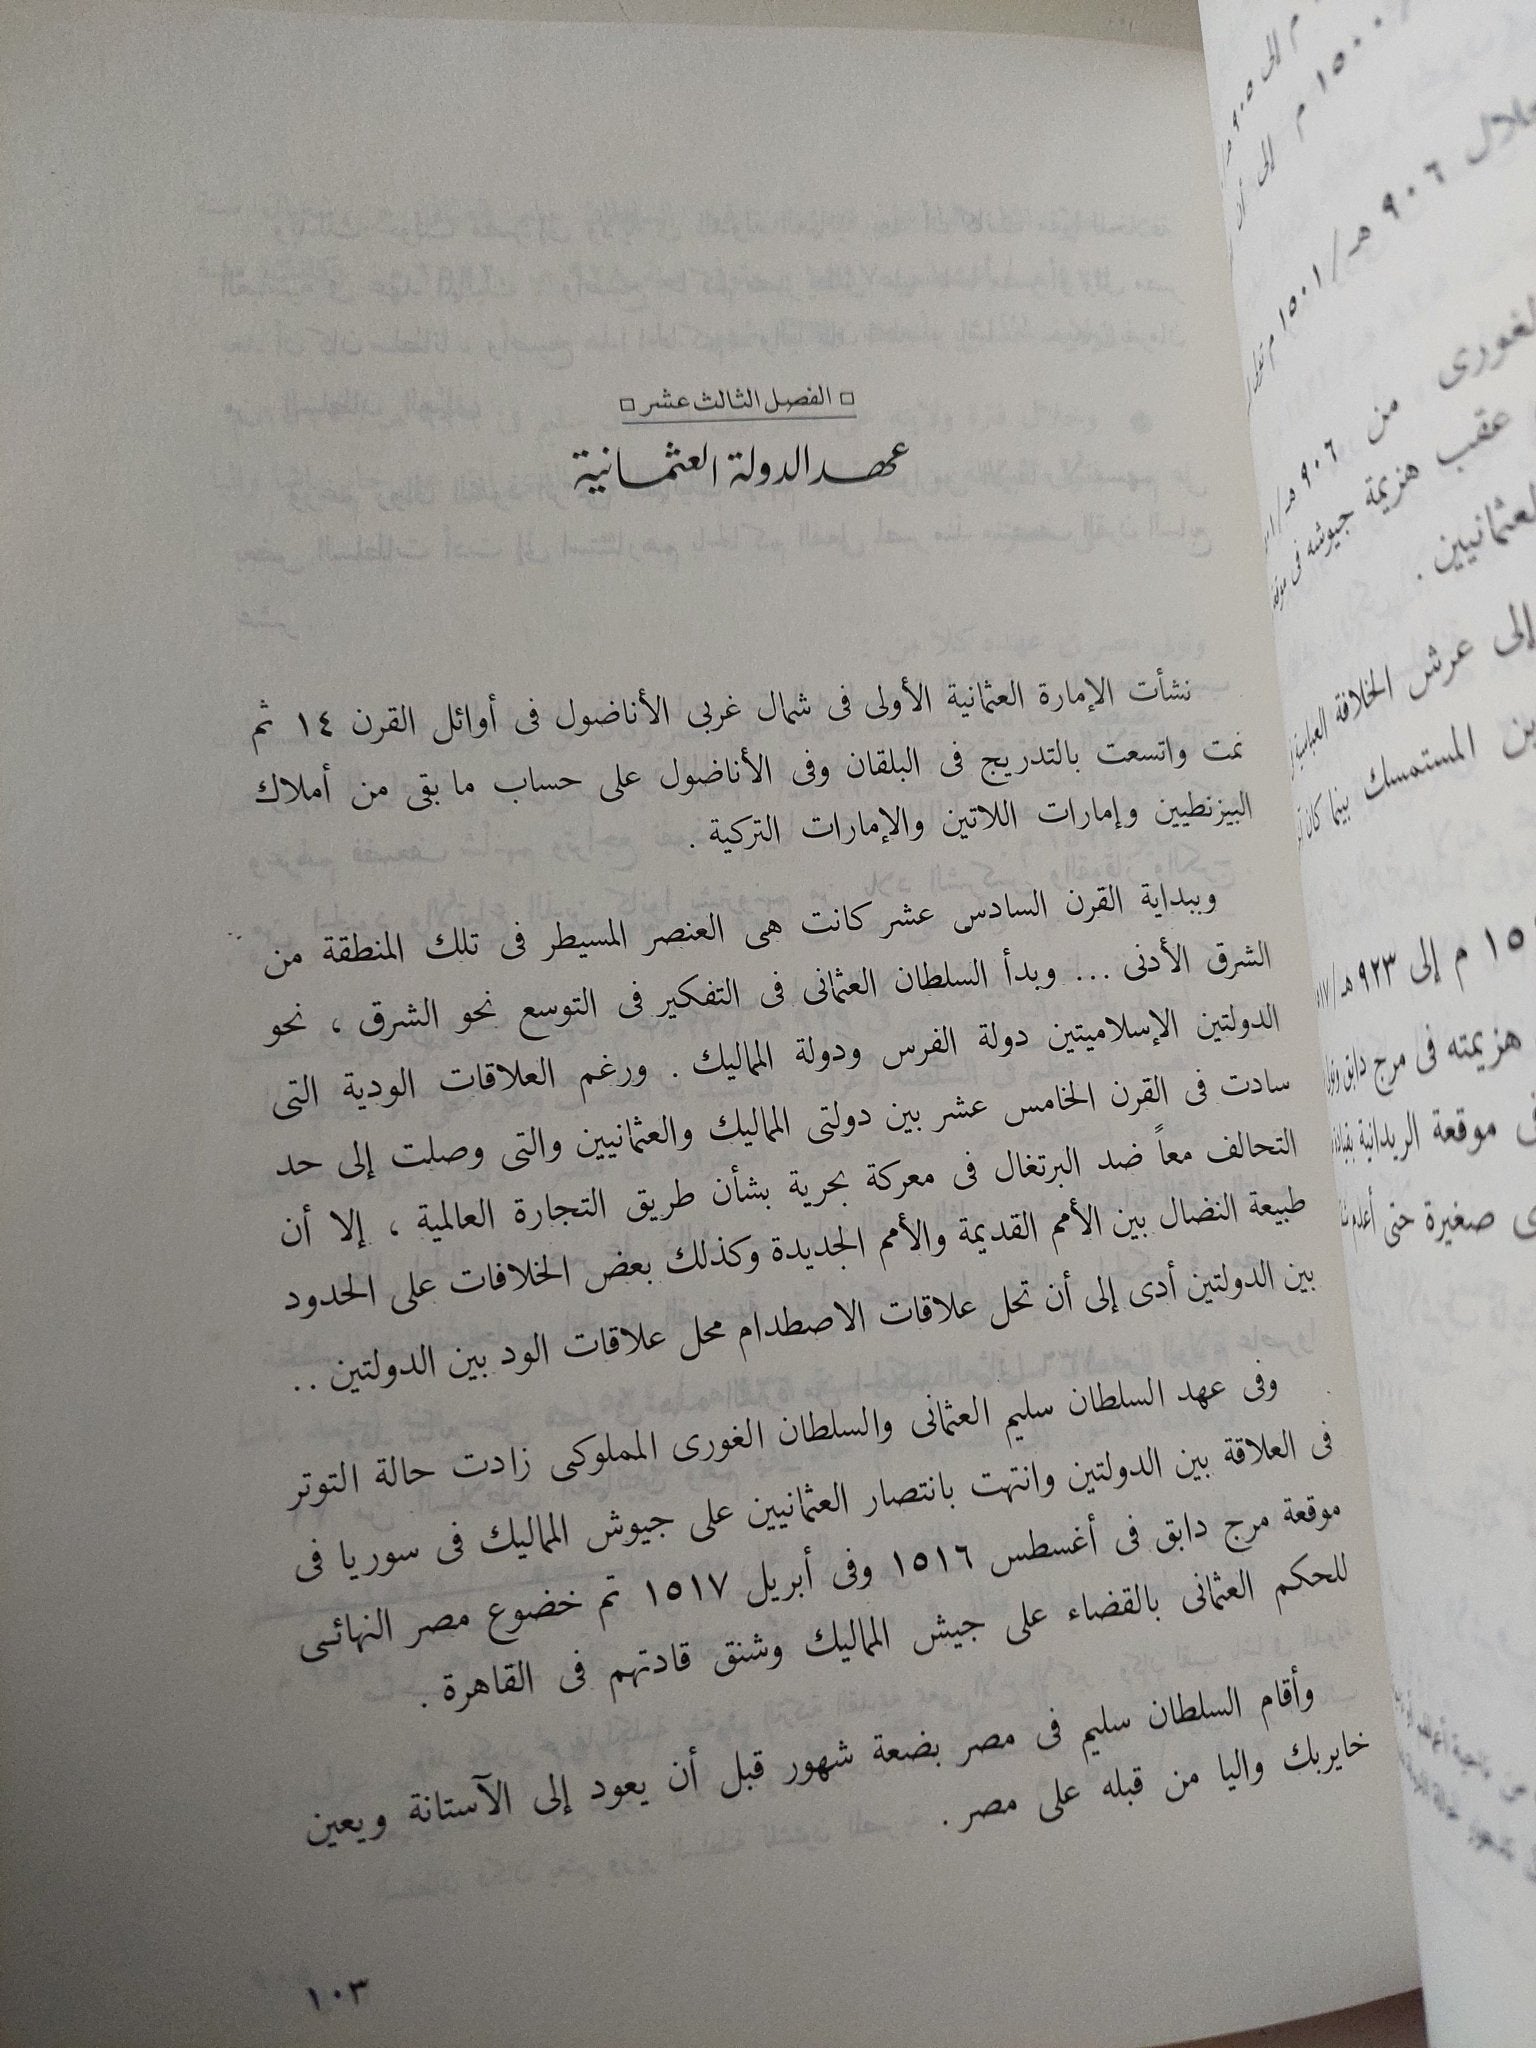 □ الفصل الثالث عشر □
عهد الدولة العثمانية
نشأت الإمارة العثمانية الأولى فى شمال غربى الأناضول فى أوائل القرن ١٤ ثم
نمت واتسعت بالتدريج فى البلقان وفى الأناضول على حساب ما بقى من أملاك
البيزنطيين وإمارات اللاتين والإمارات التركية .
وببداية القرن السادس عشر كانت هى العنصر المسيطر فى تلك المنطقة من
الشرق الأدنى ... وبدأ السلطان العثمانى فى التفكير فى التوسع نحو الشرق ، نحو
الدولتين الإسلاميتين دولة الفرس ودولة المماليك . ورغم العلاقات الودية التى
سادت فى القرن الخامس عشر بين دولتى المماليك والعثمانيين والتى وصلت إلى حد
التحالف معاً ضد البرتغال فى معركة بحرية بشأن طريق التجارة العالمية ، إلا أن
طبيعة النضال بين الأمم القديمة والأمم الجديدة وكذلك بعض الخلافات على الحدود
بين الدولتين أدى إلى أن تحل علاقات الاصطدام محل علاقات الود بين الدولتين ..
وفى عهد السلطان سليم العثمانى والسلطان الغورى المملوكى زادت حالة التوتر
فى العلاقة بين الدولتين وانتهت بانتصار العثمانيين على جيوش المماليك فى سوريا فى
موقعة مرج دابق فى أغسطس ١٥١٦ وفى أبريل ١٥١٧ تم خضوع مصر النهائى
للحكم العثمانى بالقضاء على جيش المماليك وشنق قادتهم فى القاهرة .
وأقام السلطان سليم فى مصر بضعة شهور قبل أن يعود إلى الآستانة ويعين
خايربك واليا من قبله على مصر .
١٠٣
م إلى ٩٠٥ هـ
١٥٠٠ م إلى أن
خلال ٩٠٦ هـ/١٥٠١ م
الغورى من ٩٠٦ هـ/
عقب هزيمة جيوشه فى
العثمانيين .
إلى عرش الخلافة العباسية
المستمسك بينما كان
م إلى ٩٢٣ هـ/
هزيمته فى مرج دابق
موقعة الريدانية بقيادة
صغيرة حتى أعدم